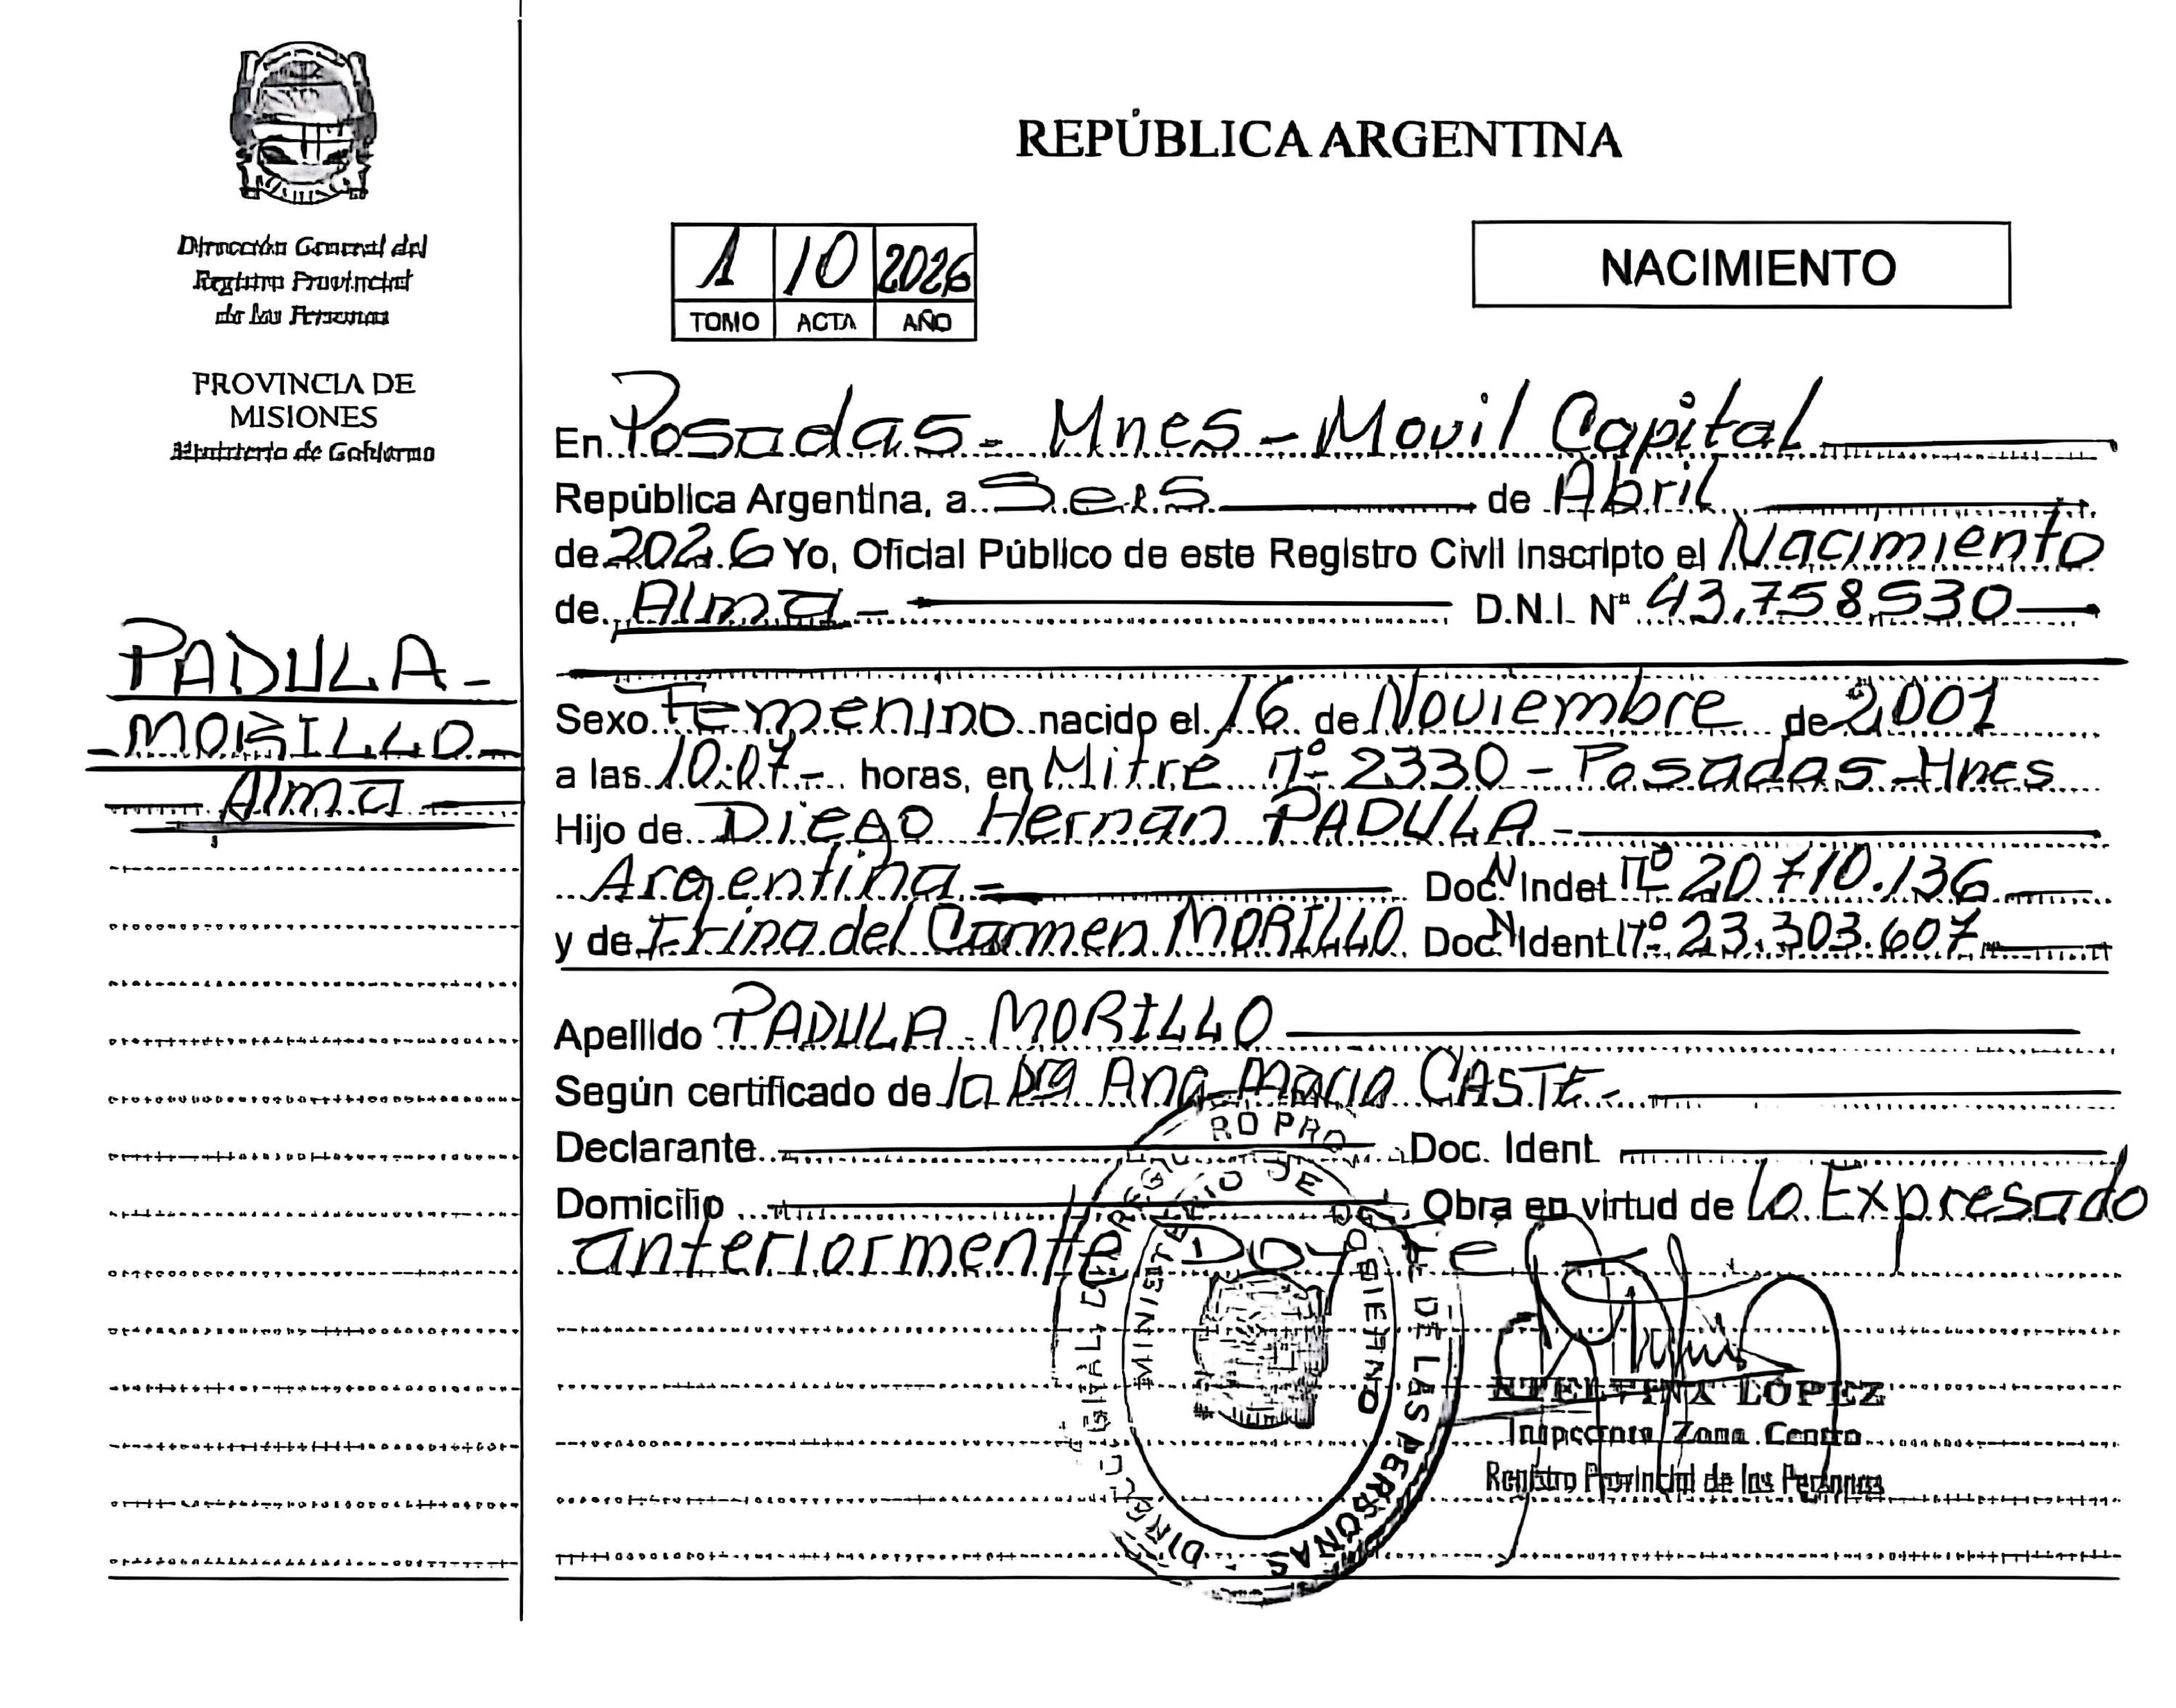 REPÚBLICA ARGENTINA
Dirección General del
Registro Provincial
de las Personas
PROVINCIA DE
MISIONES
Ministerio de Gobierno
1 10 2026
TOMO ACTA AÑO
NACIMIENTO
PADULA -
- MORILLO -
Alma
En Posadas - Mnes - Movil Capital
República Argentina, a Seis de Abril
de 2026 Yo, Oficial Público de este Registro Civil Inscripto el Nacimiento
de Alma - D.N.I. Nº 43.758.530
Sexo Femenino nacido el 16 de Noviembre de 2.001
a las 10:07 - horas, en Mitre nº 2330 - Posadas - Mnes
Hijo de Diego Hernan PADULA -
Argentina - Doc. N Indet nº 20.710.136
y de Irina del Carmen MORILLO Doc. N Ident nº 23.303.607
Apellido PADULA - MORILLO
Según certificado de la Dra Ana Maria CASTE -
Declarante Doc. Ident
Domicilio Obra en virtud de lo Expresado
anteriormente Doy Fe
MINISTERIO DE GOBIERNO
DE LAS PERSONAS
LÓPEZ
Zona Centro
Registro Provincial de las Personas